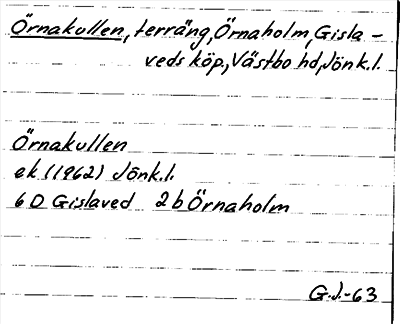 Örnakullen, terräng, Örnaholm, Gisla-
veds köp., Västbo hd, Jönk.l.
Örnakullen
ek. (1962) Jönk.l.
6D Gislaved 2b Örnaholm
G.J.-63